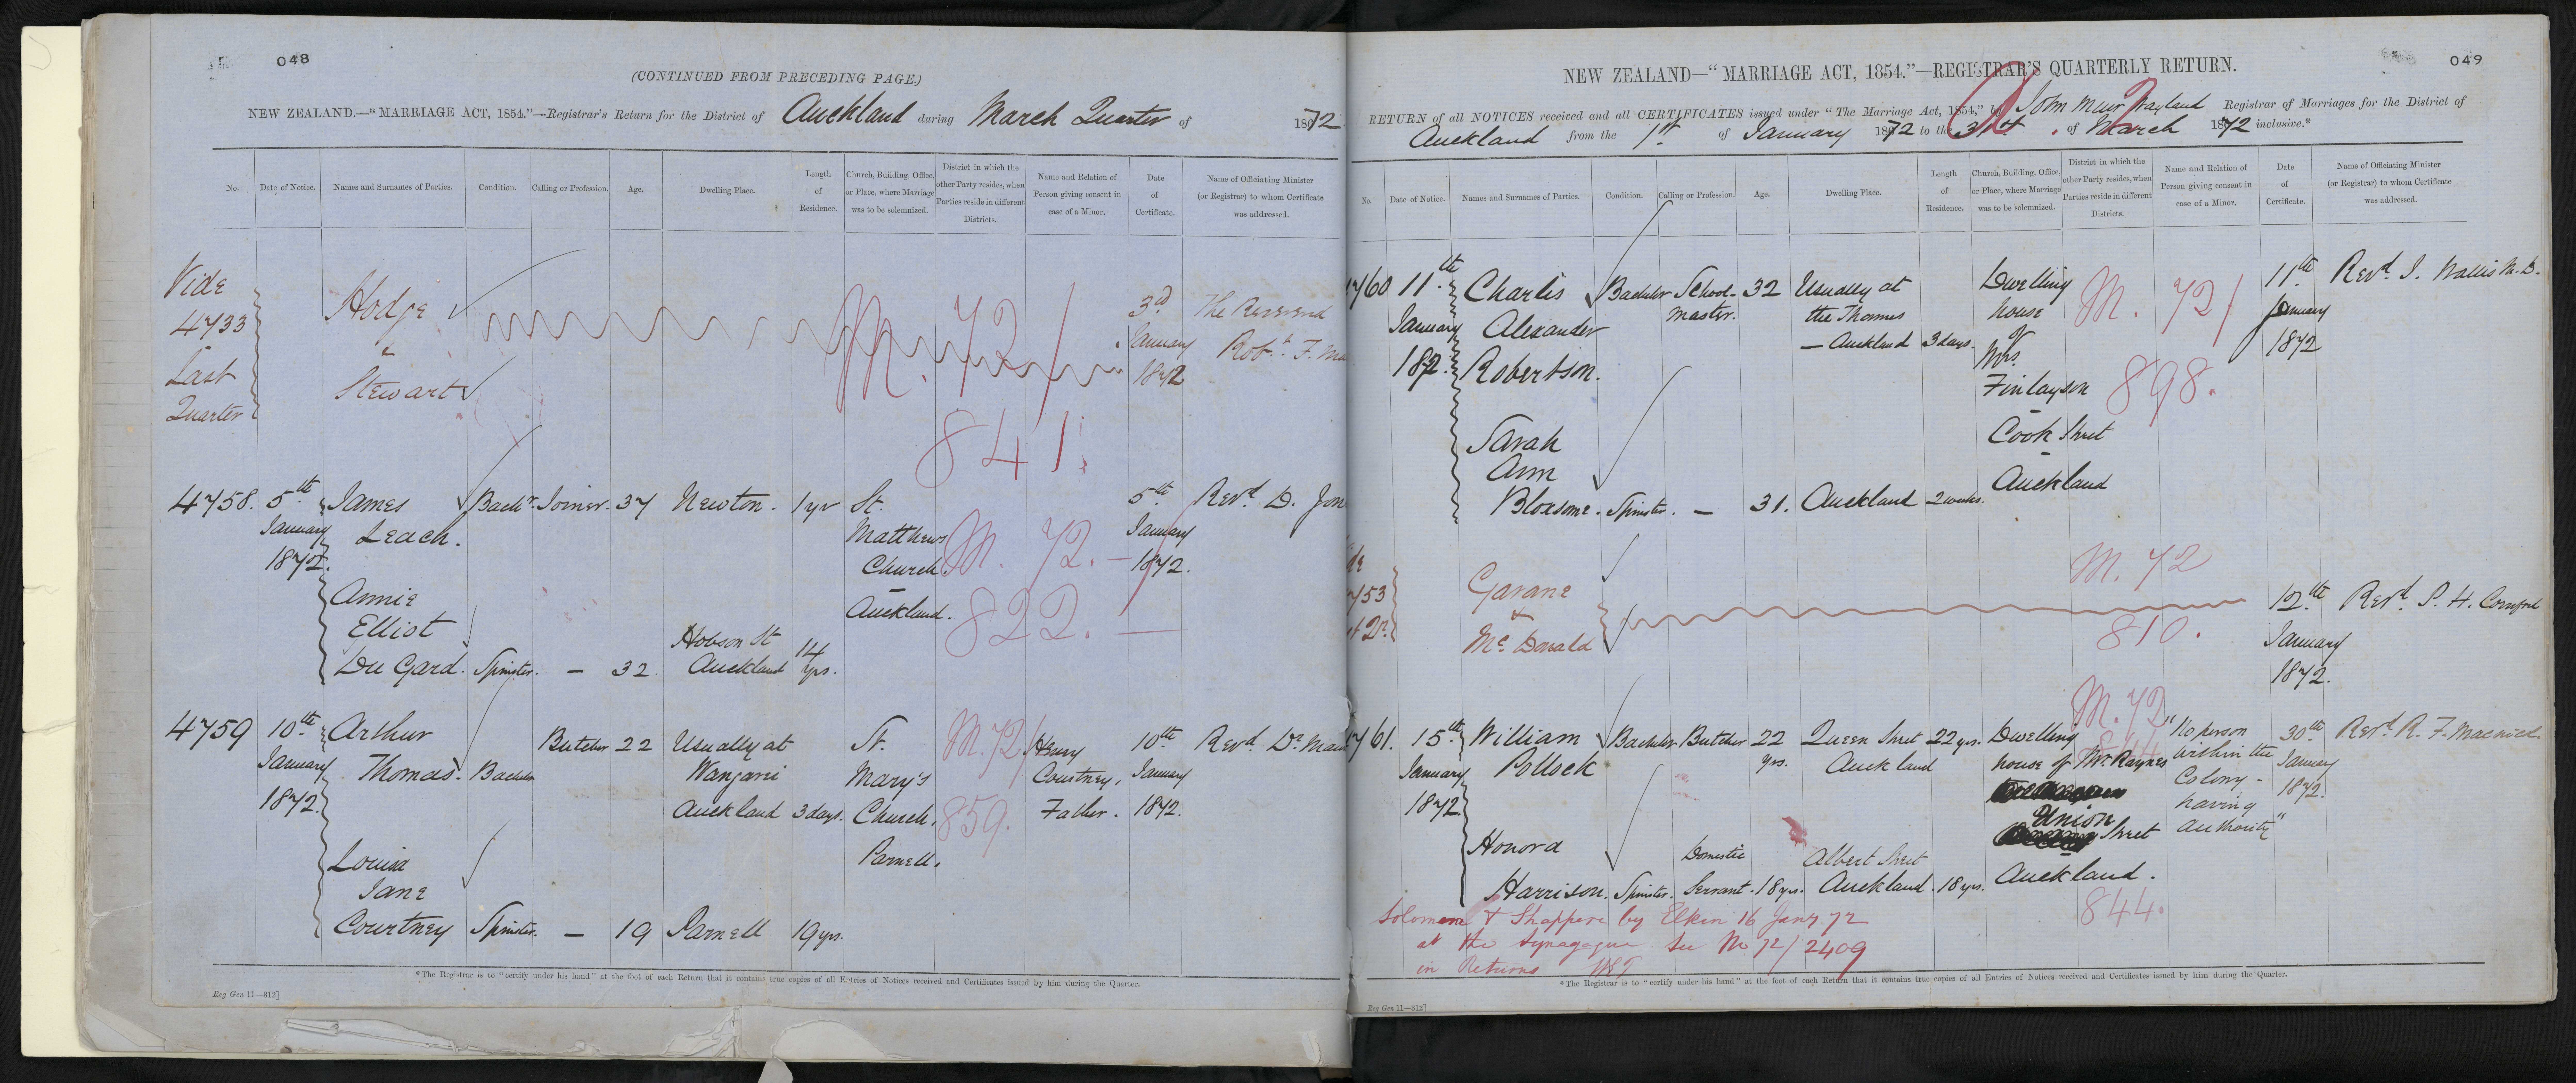 048
(CONTINUED FROM PRECEDING PAGE.)
NEW ZEALAND.—"MARRIAGE ACT, 1854."—Registrar's Return for the District of Auckland during March Quarter of 1872
No.
Date of Notice.
Names and Surnames of Parties.
Condition.
Calling or Profession.
Age.
Dwelling Place.
Length of Residence.
Church, Building, Office, or Place, where Marriage was to be solemnized.
District in which the other Party resides, when Parties reside in different Districts.
Name and Relation of Person giving consent in case of a Minor.
Date of Certificate.
Name of Officiating Minister (or Registrar) to whom Certificate was addressed.
Vide Hodge M. 72/ 3d The Reverend
4733 & January Robt. F.
Last Stewart 1872
Quarter 841.
4758. 5th James Bachr. Joiner. 37 Newton. 1 yr St. 5th Revd. D.
January Leach. Matthews M. 72. January
1872. Church. 1872.
Annie Auckland. 822.
Elliot Hobson St 14
Du Gard. Spinster. — 32. Auckland yrs.
4759 10th Arthur Butcher 22 Usually at St. M. 72/ Henry 10th Revd. Dr
January Thomas. Bachelor Wangarei Mary's Courtney, January
1872. Auckland 3 days. Church, 859. Father. 1872.
Parnell.
Louisa
Jane
Courtney Spinster. — 19 Parnell 19 yrs.
*The Registrar is to "certify under his hand" at the foot of each Return that it contains true copies of all Entries of Notices received and Certificates issued by him during the Quarter.
Reg Gen 11—312]
049
NEW ZEALAND—"MARRIAGE ACT, 1854."—REGISTRAR'S QUARTERLY RETURN.
RETURN of all NOTICES received and all CERTIFICATES issued under "The Marriage Act, 1854," by John Muir Wayland Registrar of Marriages for the District of
Auckland from the 1st of January 1872 to the 31st of March 1872 inclusive.*
No.
Date of Notice.
Names and Surnames of Parties.
Condition.
Calling or Profession.
Age.
Dwelling Place.
Length of Residence.
Church, Building, Office, or Place, where Marriage was to be solemnized.
District in which the other Party resides, when Parties reside in different Districts.
Name and Relation of Person giving consent in case of a Minor.
Date of Certificate.
Name of Officiating Minister (or Registrar) to whom Certificate was addressed.
760 11th Charles Bachelor School- 32 Usually at Dwelling M. 72/ 11th Revd. J. Wallis M.D.
January Alexander master. the Thames house January
1872. Robertson. — Auckland 3 days. of 1872
Mrs.
Finlayson 898.
Sarah Cook Street
Ann Auckland
Bloxsome. Spinster. — 31. Auckland 2 weeks.
Garane M. 72
753 & 12th Revd. P. H. Cornford
Mc Donald 810. January
1872.
761. 15th William Bachelor Butcher 22 Queen Street 22 yrs. Dwelling M. 72 "No person 30th Revd. R. F.
January Pollock yrs. Auckland house of Mr Raynes within the January
1872 Colony - 1872.
Union having
Street authority"
Honora Domestic Albert Street Auckland.
Harrison. Spinster. Servant. 18 yrs. Auckland. 18 yrs. 844.
Solomon & Shappere by Elkin 16 Jany 72
at the Synagogue See M 72/2409
in Returns
*The Registrar is to "certify under his hand" at the foot of each Return that it contains true copies of all Entries of Notices received and Certificates issued by him during the Quarter.
Reg Gen 11—312]